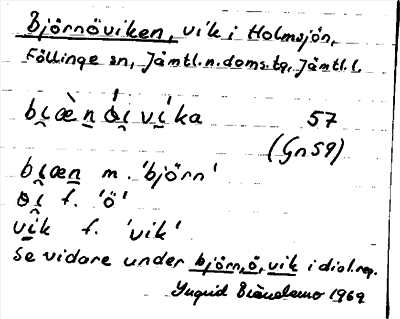 Björnöviken, vik i Holmsjön,
Föllinge sn, Jämtl.n.doms.tg, Jämtl.l.
bi̯æ̀n ói̯ vi̱ka 57
(Gn 59)
bi̯æn m. 'björn'
øi̯ f. 'ö'
vi̱k f. 'vik'
Se vidare under björn, ö, vik i dial.reg.
Yngrid 1969